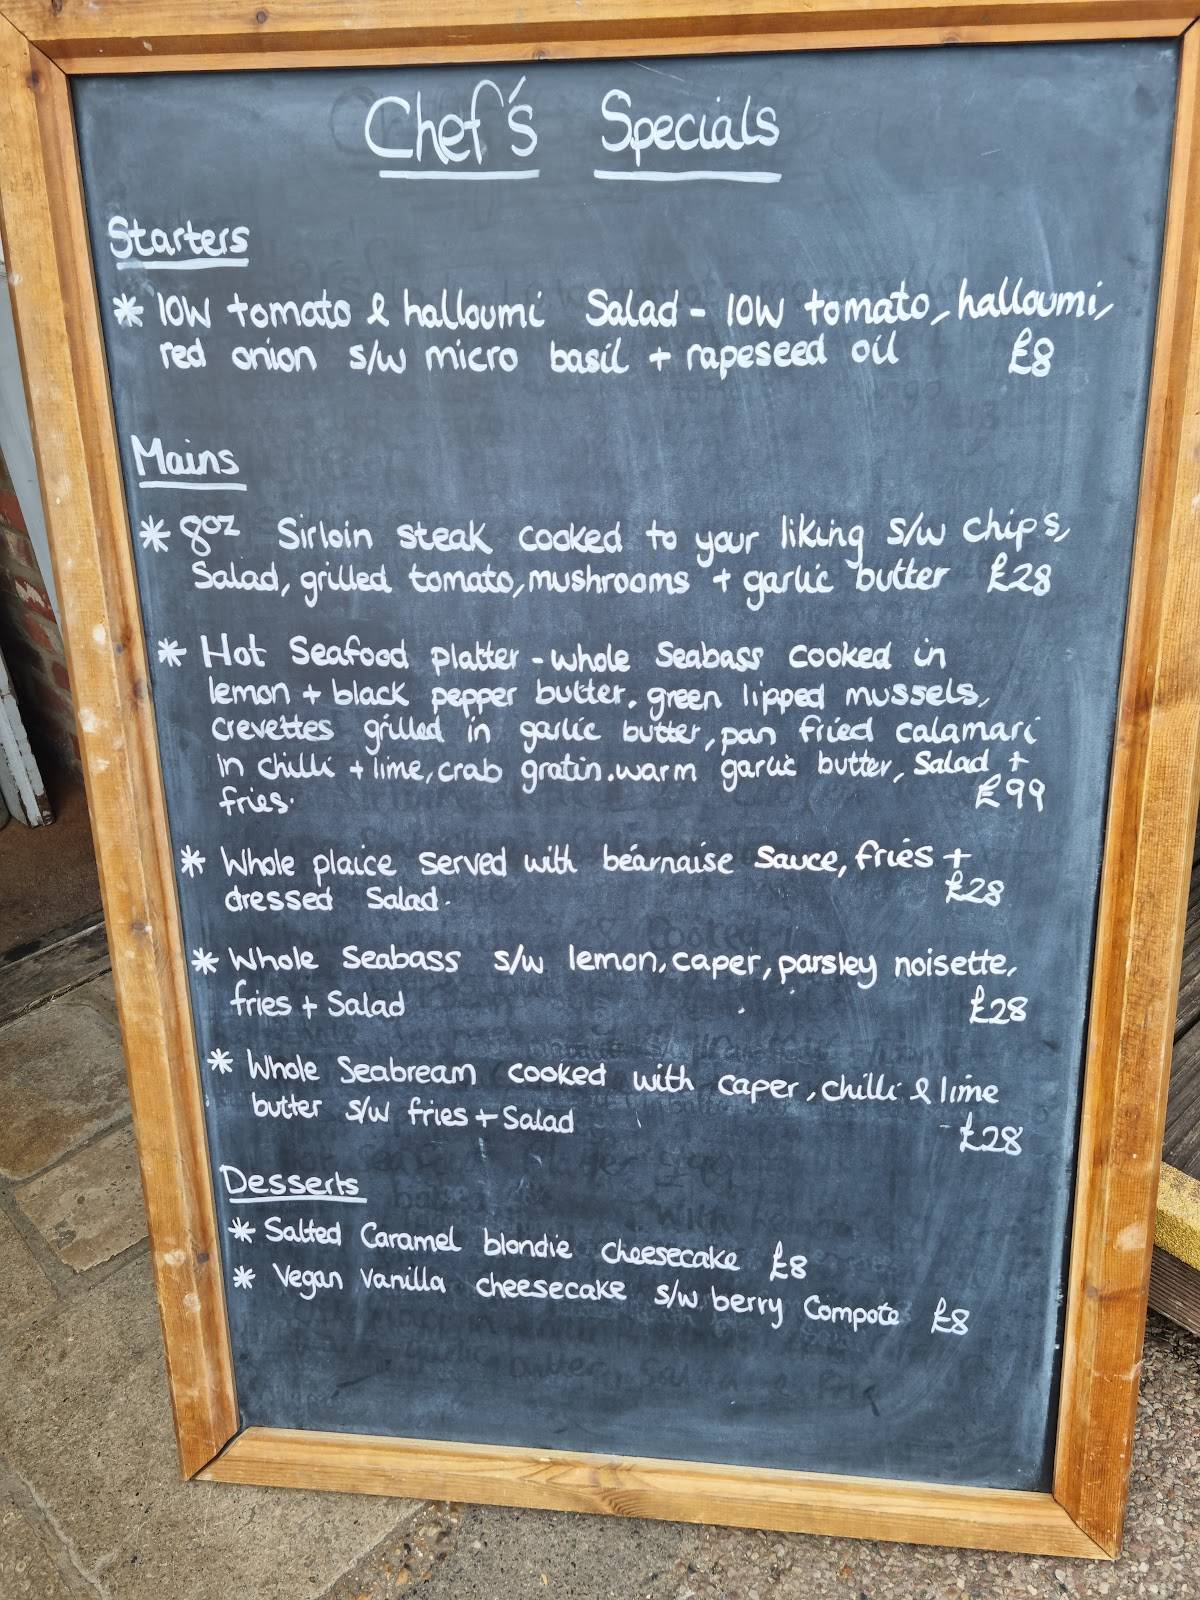 Chef's Specials
Starters
* IOW tomato & halloumi Salad - IOW tomato, halloumi,
red onion s/w micro basil + rapeseed oil £8
Mains
* 8oz Sirloin steak cooked to your liking s/w chips,
Salad, grilled tomato, mushrooms + garlic butter £28
* Hot Seafood platter - whole Seabass cooked in
lemon + black pepper butter, green lipped mussels,
crevettes grilled in garlic butter, pan fried calamari
in chilli + lime, crab gratin, warm garlic butter, Salad +
fries. £99
* Whole plaice served with béarnaise Sauce, fries +
dressed Salad. £28
* Whole Seabass s/w lemon, caper, parsley noisette,
fries + Salad £28
* Whole Seabream cooked with caper, chilli & lime
butter s/w fries + Salad £28
Desserts
* Salted Caramel blondie cheesecake £8
* Vegan Vanilla cheesecake s/w berry Compote £8